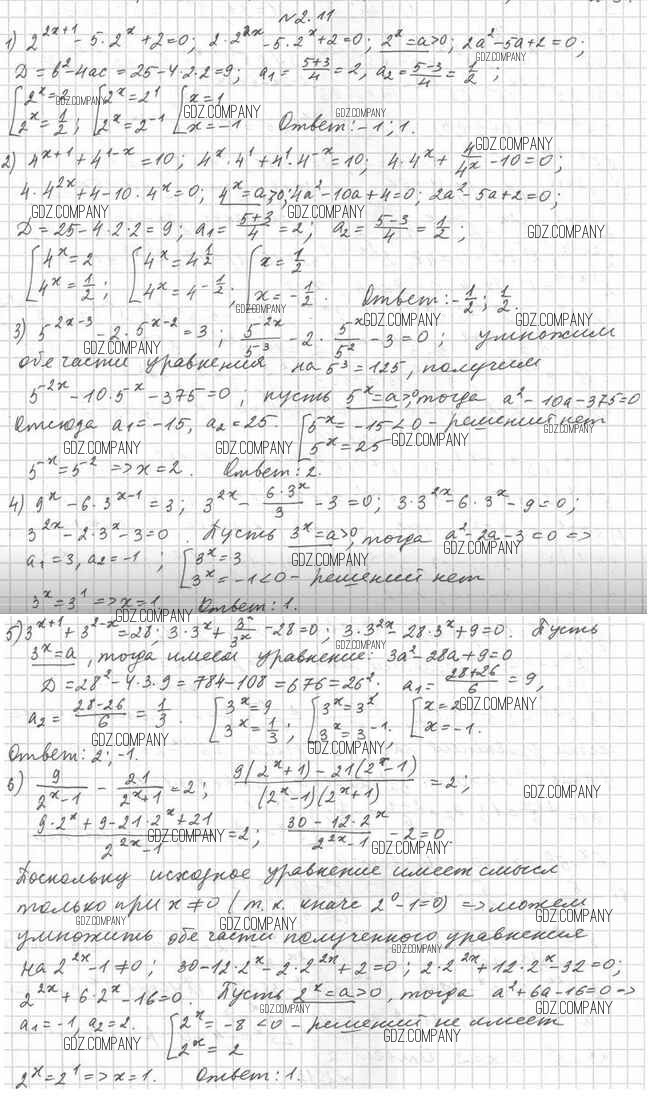 №2.11
1) 2^{2x+1} - 5·2^x + 2 = 0; 2·2^{2x} - 5·2^x + 2 = 0; 2^x = a > 0; 2a² - 5a + 2 = 0;
D = b² - 4ac = 25 - 4·2·2 = 9; a₁ = (5+3)/4 = 2, a₂ = (5-3)/4 = 1/2;
[2^x = 2; 2^x = 1/2; [2^x = 2^1; 2^x = 2^{-1}; [x = 1; x = -1 Ответ: -1; 1.
2) 4^{x+1} + 4^{1-x} = 10; 4^x·4^1 + 4^1·4^{-x} = 10; 4·4^x + 4/4^x - 10 = 0;
4·4^{2x} + 4 - 10·4^x = 0; 4^x = a > 0; 4a² - 10a + 4 = 0; 2a² - 5a + 2 = 0;
D = 25 - 4·2·2 = 9; a₁ = (5+3)/4 = 2; a₂ = (5-3)/4 = 1/2;
[4^x = 2; 4^x = 1/2; [4^x = 4^{1/2}; 4^x = 4^{-1/2}; [x = 1/2; x = -1/2. Ответ: -1/2; 1/2.
3) 5^{2x-3} - 2·5^{x-2} = 3; 5^{2x}/5^3 - 2·5^x/5^2 - 3 = 0; умножим
обе части уравнения на 5³ = 125, получим
5^{2x} - 10·5^x - 375 = 0, пусть 5^x = a > 0, тогда a² - 10a - 375 = 0
Отсюда a₁ = -15, a₂ = 25. [5^x = -15 < 0 - решений нет
5^x = 25
5^x = 5^2 => x = 2. Ответ: 2.
4) 9^x - 6·3^{x-1} = 3; 3^{2x} - 6·3^x/3 - 3 = 0; 3·3^{2x} - 6·3^x - 9 = 0;
3^{2x} - 2·3^x - 3 = 0. Пусть 3^x = a > 0, тогда a² - 2a - 3 = 0 =>
a₁ = 3, a₂ = -1; [3^x = 3
3^x = -1 < 0 - решений нет
3^x = 3^1 => x = 1. Ответ: 1.
5) 3^{x+1} + 3^{2-x} = 28; 3·3^x + 3²/3^x - 28 = 0; 3·3^{2x} - 28·3^x + 9 = 0. Пусть
3^x = a, тогда имеем уравнение: 3a² - 28a + 9 = 0
D = 28² - 4·3·9 = 784 - 108 = 676 = 26². a₁ = (28+26)/6 = 9,
a₂ = (28-26)/6 = 1/3. [3^x = 9; 3^x = 1/3; [3^x = 3^2; 3^x = 3^{-1}; [x = 2; x = -1.
Ответ: 2; -1.
6) 9/(2^x-1) - 21/(2^x+1) = 2; (9(2^x+1) - 21(2^x-1))/((2^x-1)(2^x+1)) = 2;
(9·2^x + 9 - 21·2^x + 21)/(2^{2x}-1) = 2; (30 - 12·2^x)/(2^{2x}-1) - 2 = 0.
Поскольку исходное уравнение имеет смысл
только при x ≠ 0 (т.к. иначе 2^0 - 1 = 0) => можем
умножить обе части полученного уравнения
на 2^{2x} - 1 ≠ 0; 30 - 12·2^x - 2·2^{2x} + 2 = 0; 2·2^{2x} + 12·2^x - 32 = 0;
2^{2x} + 6·2^x - 16 = 0. Пусть 2^x = a > 0, тогда a² + 6a - 16 = 0 =>
a₁ = -1, a₂ = 2. [2^x = -8 < 0 - решений не имеет
2^x = 2
2^x = 2^1 => x = 1. Ответ: 1.
GDZ.COMPANY